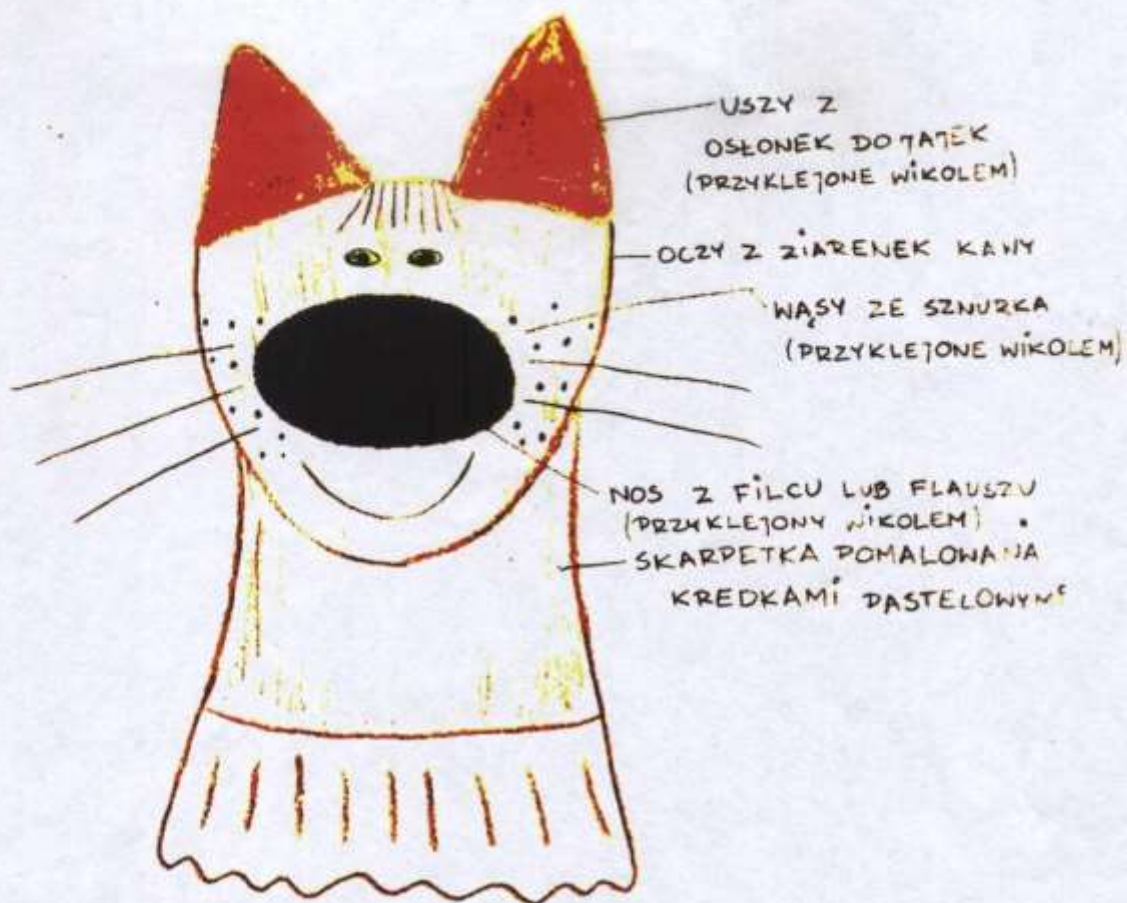 USZY Z
OSŁONEK DO JAJEK
(PRZYKLEJONE WIKOLEM)
OCZY Z ZIARENEK KAWY
WĄSY ZE SZNURKA
(PRZYKLEJONE WIKOLEM)
NOS Z FILCU LUB FLAUSZU
(PRZYKLEJONY WIKOLEM)
SKARPETKA POMALOWANA
KREDKAMI PASTELOWYMI